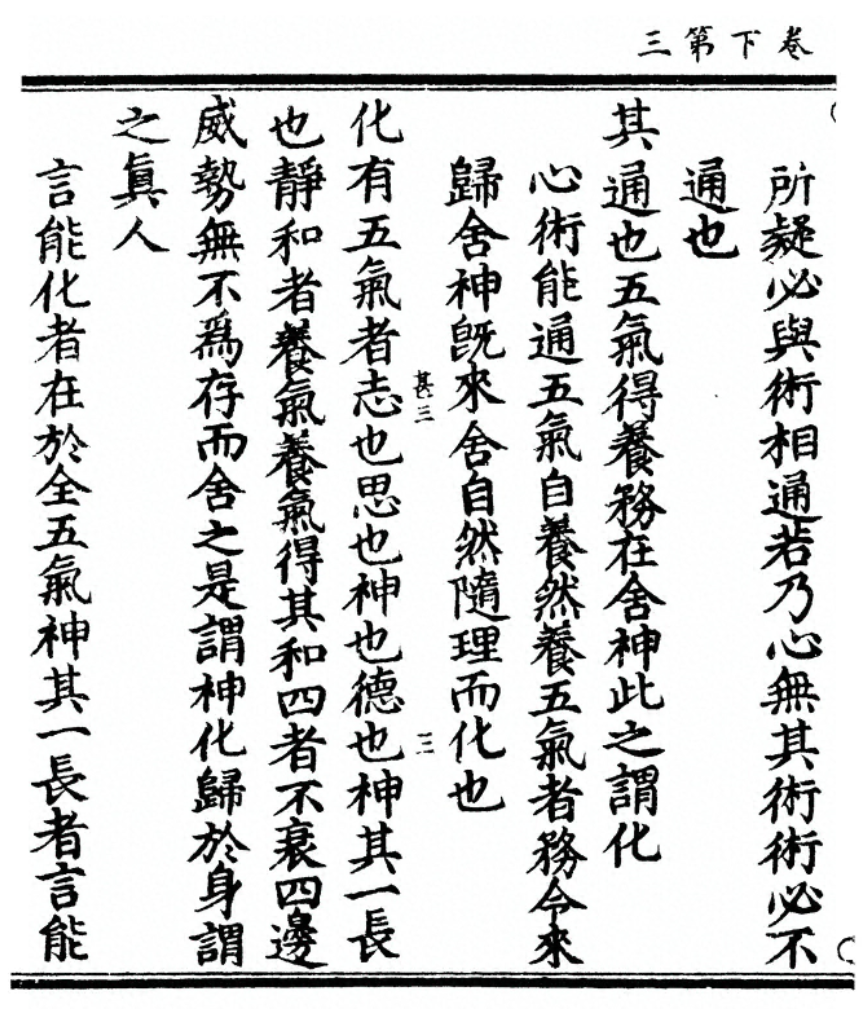 卷下第三
所疑必與術相通若乃心無其術術必不
通也
其通也五氣得養務在舍神此之謂化
心術能通五氣自養然養五氣者務令來
歸舍神既來舍自然隨理而化也
化有五氣者志也思也神也德也神其一長
甚三
三
也靜和者養氣養氣得其和四者不衰四邊
威勢無不爲存而舍之是謂神化歸於身謂
之眞人
言能化者在於全五氣神其一長者言能